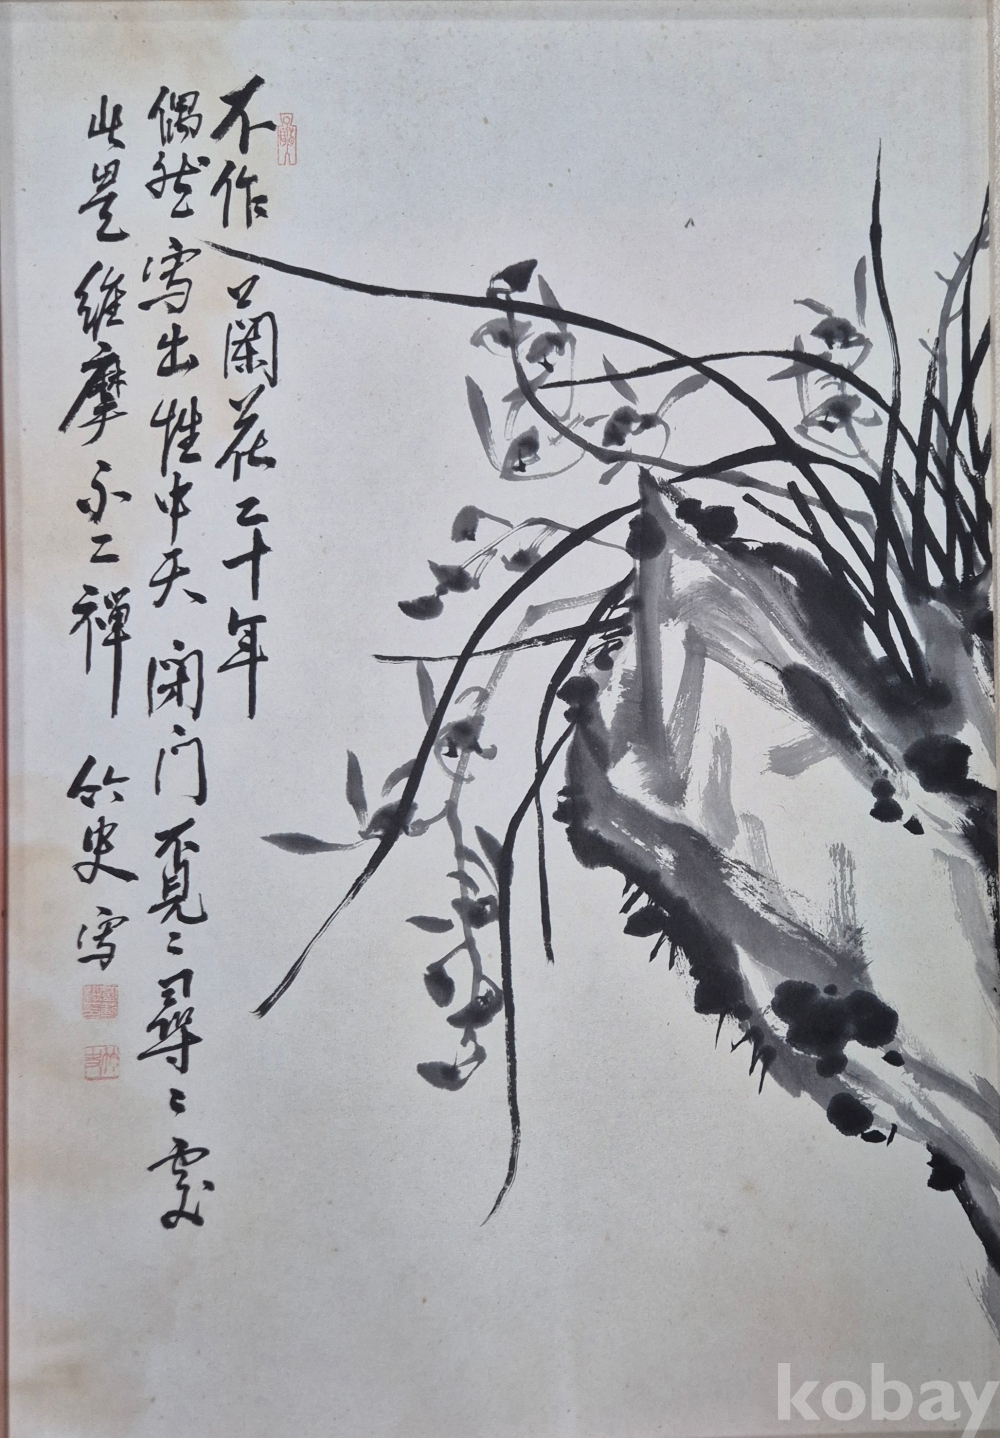 不作蘭花二十年
偶然寫出性中天閉門覔〻尋〻處
此是維摩不二禪 竹史寫
竹史
kobay